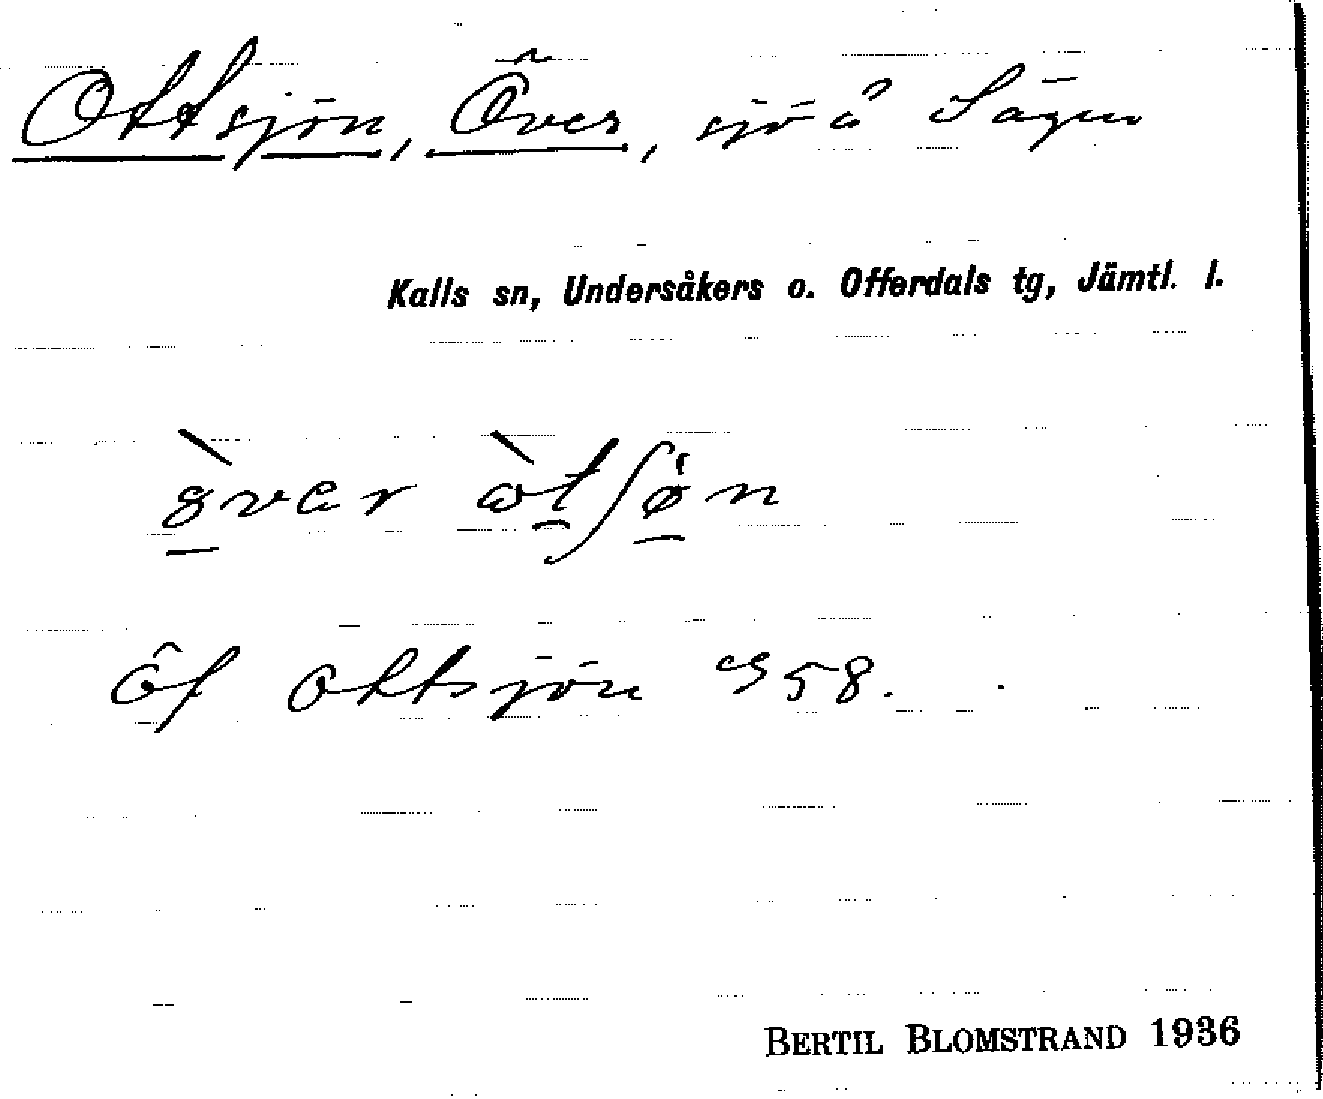 Ottsjön, Över, sjö å Lägen
Kalls sn, Undersåkers o. Offerdals tg, Jämtl. l.
Öf Ottsjön 58.
BERTIL BLOMSTRAND 1936